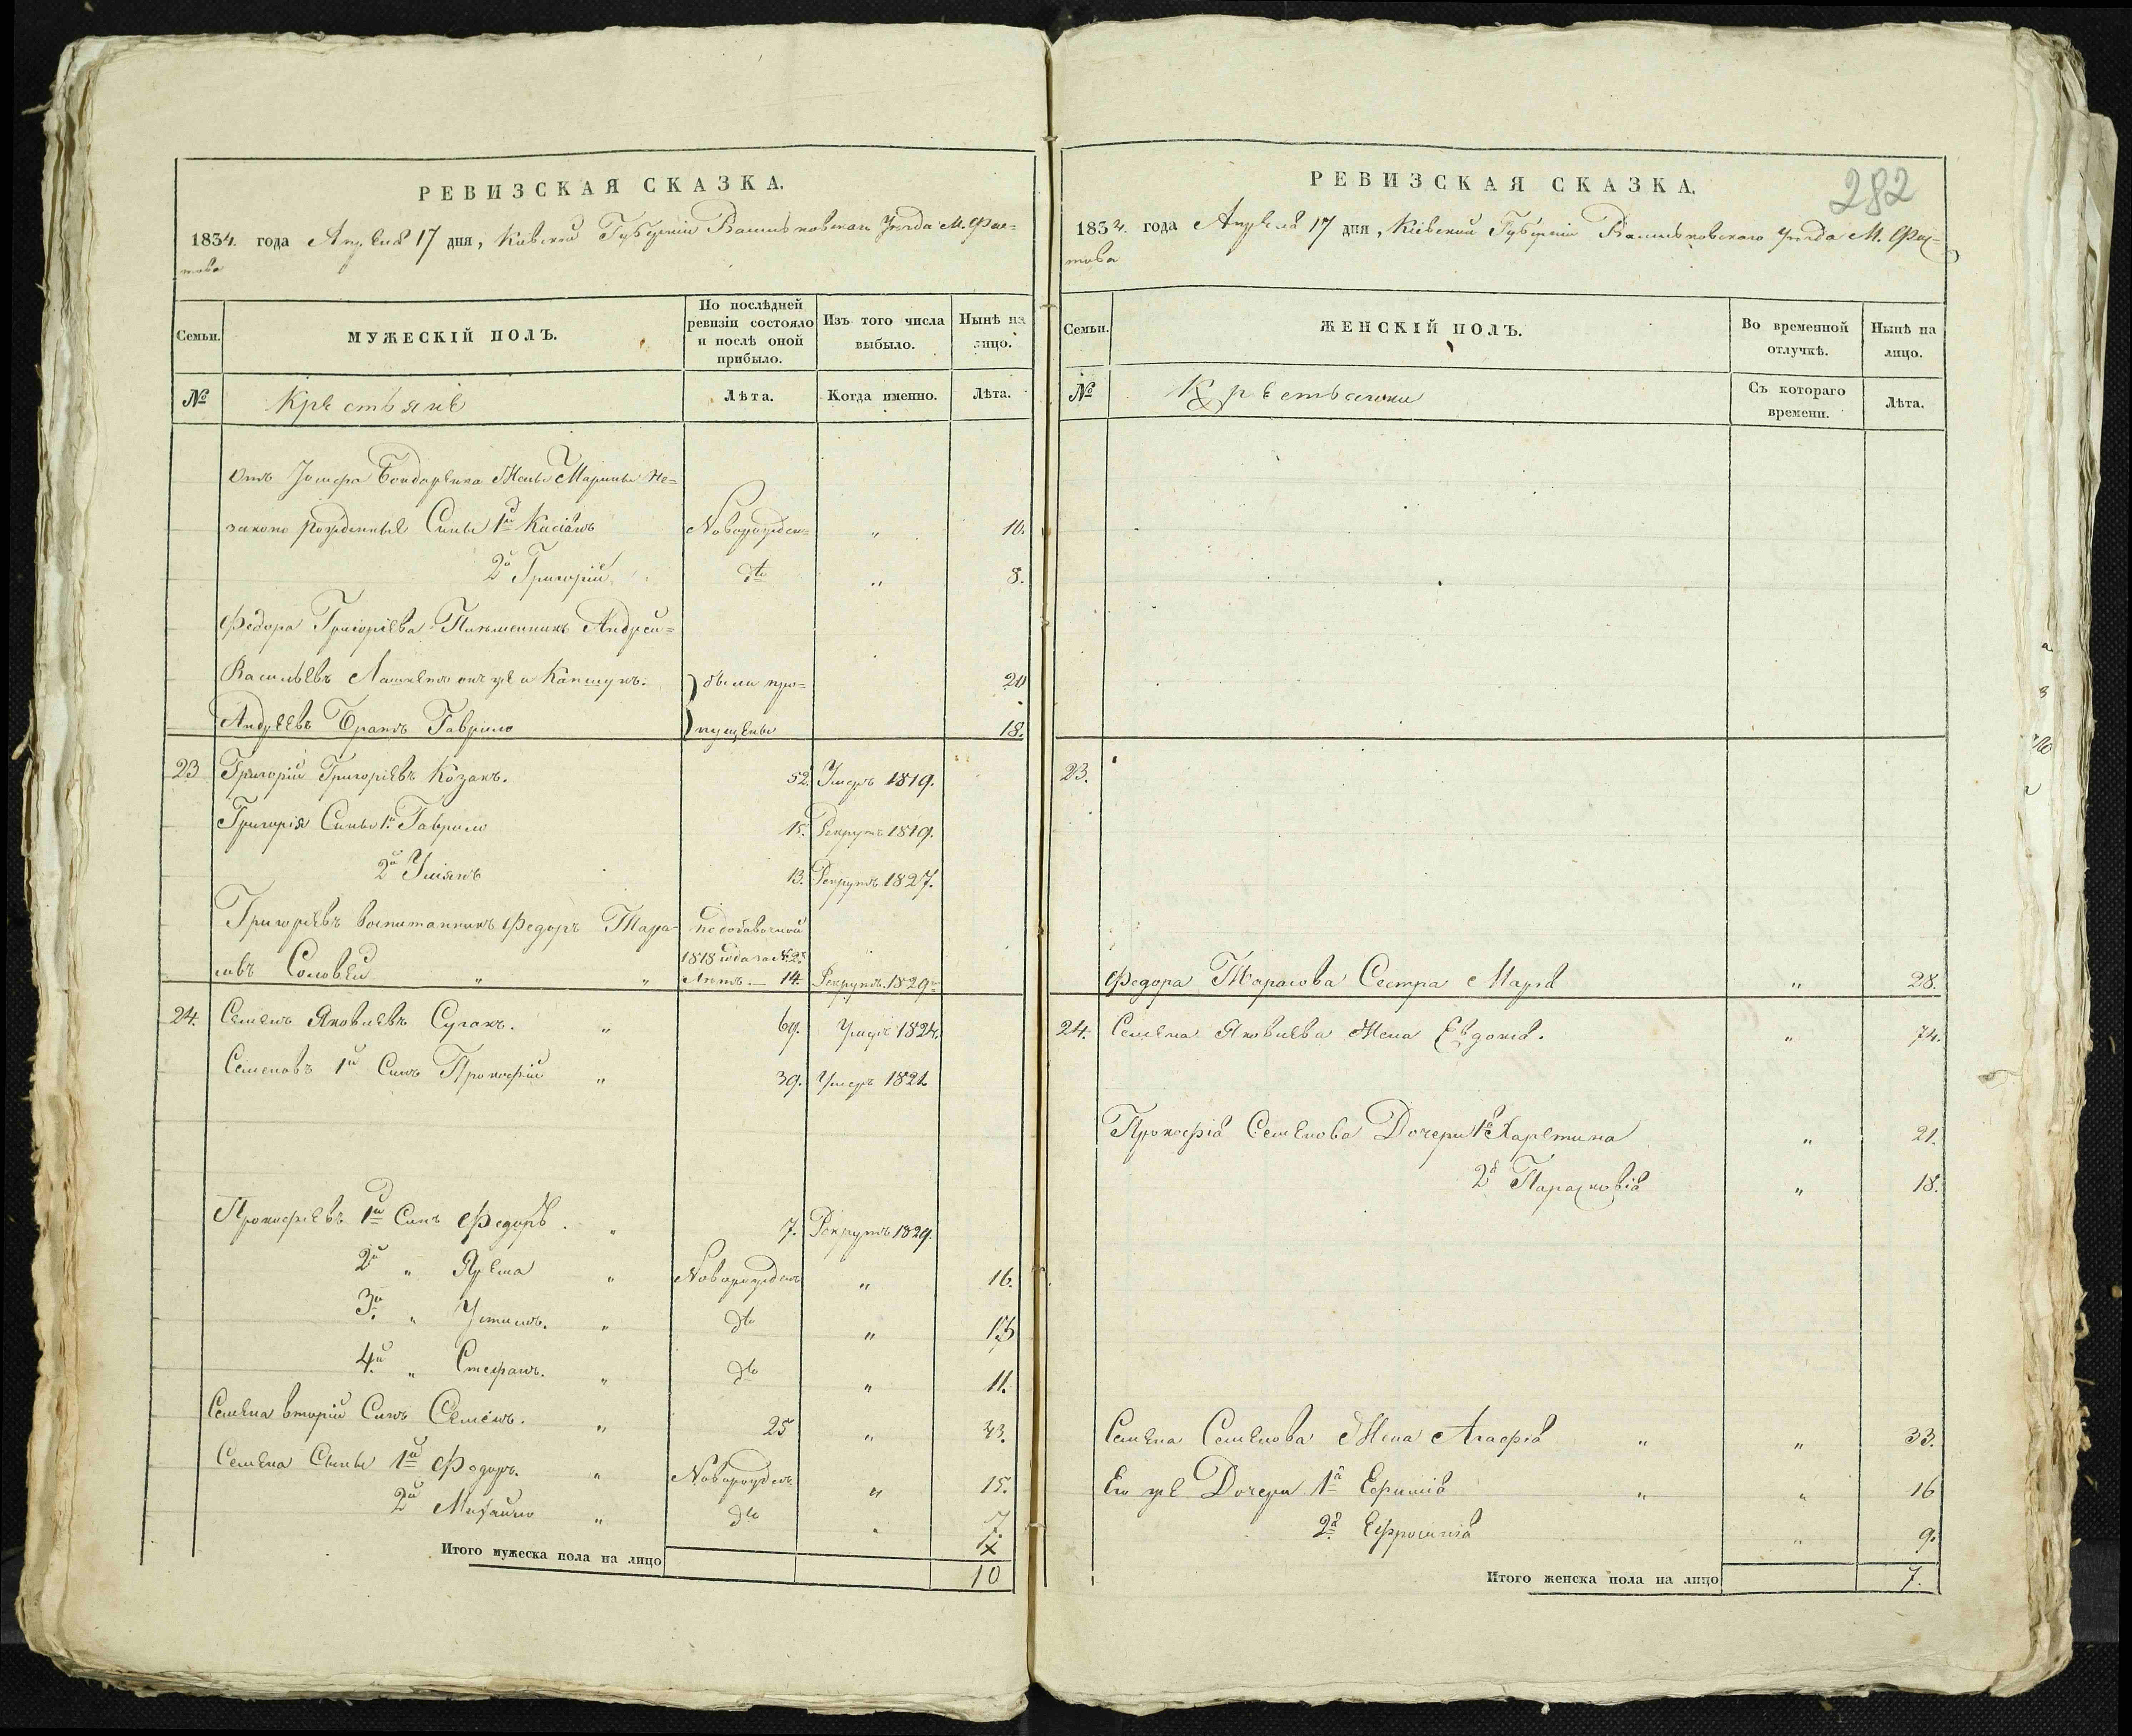 РЕВИЗСКАЯ СКАЗКА.
1834. года Апреля 17 дня, Киевской Губернии Васильковскаго Уезда М. Фас=
това
Семьи.
МУЖЕСКІЙ ПОЛЪ.
По послѣдней ревизіи состояло и послѣ оной прибыло.
Изъ того числа выбыло.
Нынѣ на лицо.
№
Крестьяне
Лѣта.
Когда именно.
Лѣта.
Бондаренка Жены Марины не=
законо рожденные Сыны 1й Касіянъ Новорожден= " 10.
2й Григорій dto " 8.
Федора Григоріева Письменникъ Андрей=
Васильевъ онъ же и Капшукъ. были про= 20
Андреевъ Братъ Гаврило пущены 18.
23 Григорій Григоріевъ Козакъ. 52. Умеръ 1819.
Григорія Сыны 1й Гаврило 15. Рекрутъ 1819.
2й 13. Рекрутъ 1827.
Григоріевъ воспитанникъ Федоръ Тара= по добавочной
совъ Соловей " " 1818 года за №
Летъ — 14. Рекрутъ. 1829
24. Семенъ Яковлевъ Сугакъ. " 69. Умеръ 1824.
Семеновъ 1й Сынъ Прокофій " 39. Умеръ 1821.
Прокофіевъ 1й Сынъ Федоръ. " 7. Рекрутъ 1829.
2й " Ярема " Новорожденъ " 16.
3й " Устимъ. " dto " 13
4й " Стефанъ. " dto " 11.
Семена вторій Сынъ Семенъ. " 25 " 43.
Семена Сыны 1й Федоръ. " Новорожденъ " 15.
2й Михайло " dto " 7.
Итого мужеска пола на лицо 10
282
РЕВИЗСКАЯ СКАЗКА.
1834. года Апреля 17 дня, Кіевской Губерніи Васильковскаго Уезда М. Фас=
това
Семьи.
ЖЕНСКІЙ ПОЛЪ.
Во временной отлучкѣ.
Нынѣ на лицо.
№
Крестьянки
Съ котораго времени.
Лѣта.
23.
Федора Тарасова Сестра Марія " 28.
24. Семена Яковлева Жена Евдокія. " 74.
Прокофія Семенова Дочери 1я Харетина " 21.
2я Парасковія " 18.
Семена Семенова Жена Агафія " " 33.
Его же Дочери 1я Ефимія " " 16
2я Ефросинія " 9.
Итого женска пола на лицо 7.